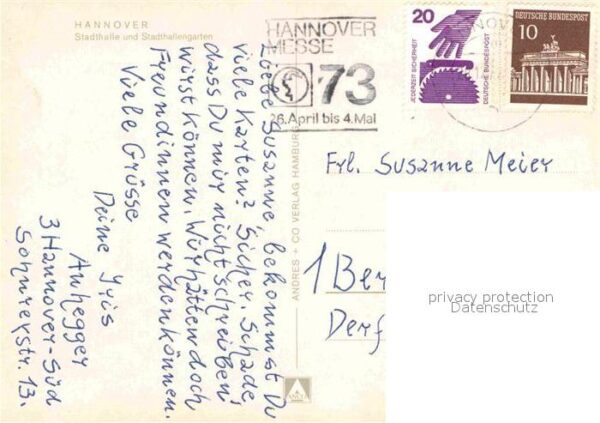 HANNOVER
Stadthalle und Stadthallengarten
Liebe Susanne, bekommst Du
viele Karten? Sicher. Schade,
dass Du mir nicht schreiben
wirst können. Wir hätten doch
Freundinnen werden können.
Viele Grüsse
Deine Iris
Anhegger
3 Hannover-Süd
Sohnreystr. 13.
ANDRES + CO VERLAG HAMBURG
HANNOVER
MESSE
73
26. April bis 4. Mai
20
JEDERZEIT SICHERHEIT
DEUTSCHE BUNDESPOST
DEUTSCHE BUNDESPOST
10
Frl. Susanne Meier
1 Ber
Derf
privacy protection
Datenschutz